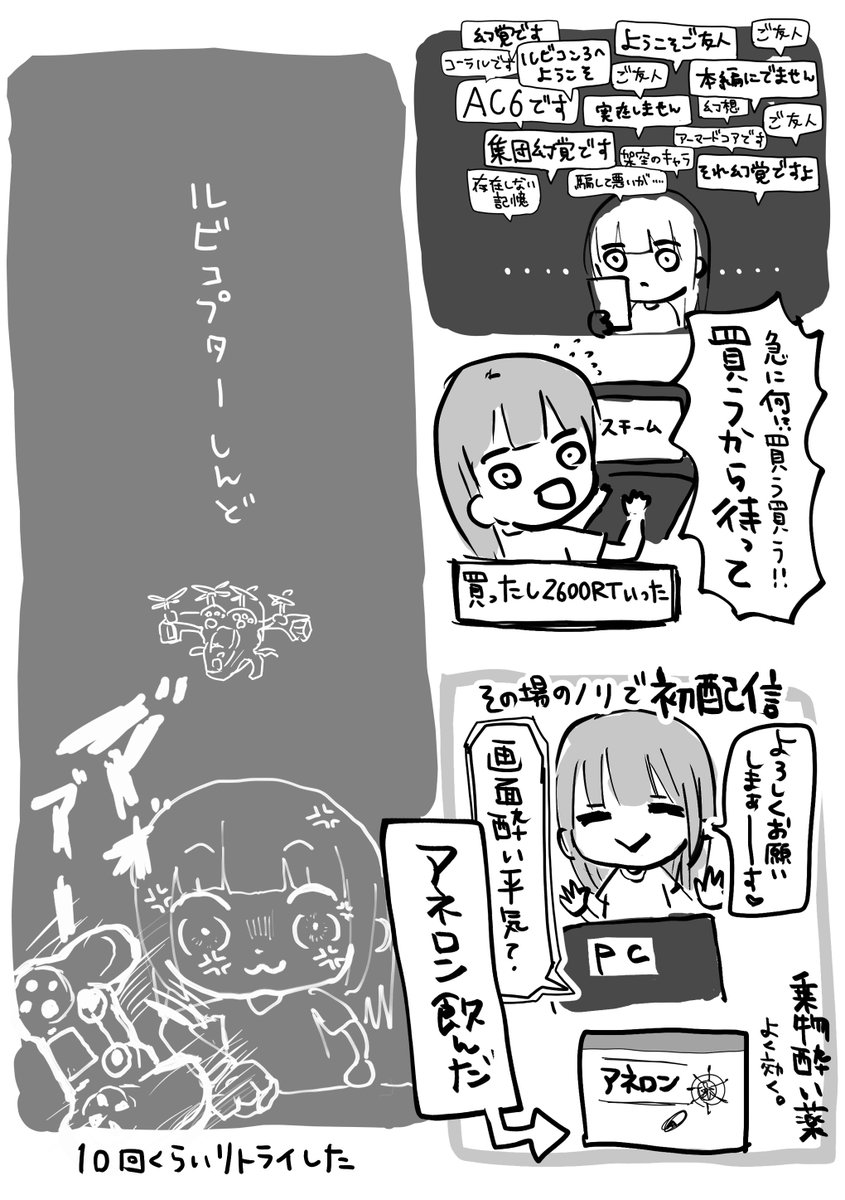 幻覚です
ようこそご友人
ご友人
コーラルです
ルビコン3へ
ようこそ
ご友人
本編にでません
AC6です
実在しません
幻想
ご友人
集団幻覚です
架空のキャラ
アーマードコアです
それ幻覚ですよ
存在しない
記憶
騙して悪いが…
……
……
急に何!?買う買う!!
買うから待って
スチーム
買ったし2600RTいった
その場のノリで初配信
よろしくお願い
しまぁーーす♡
画面酔い平気?
PC
アネロン飲んだ
アネロン
乗物酔い薬
よく効く。
ルビコプターしんど
10回くらいリトライした